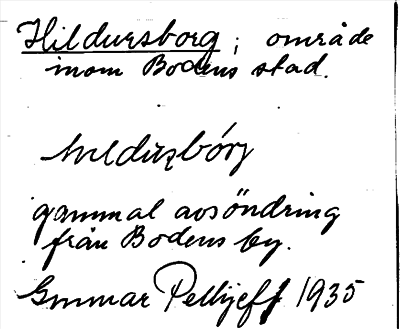 Hildursborg ; område
inom Bodens stad.
gammal avsöndring
från Bodens by.
Gunnar Pellijeff 1935